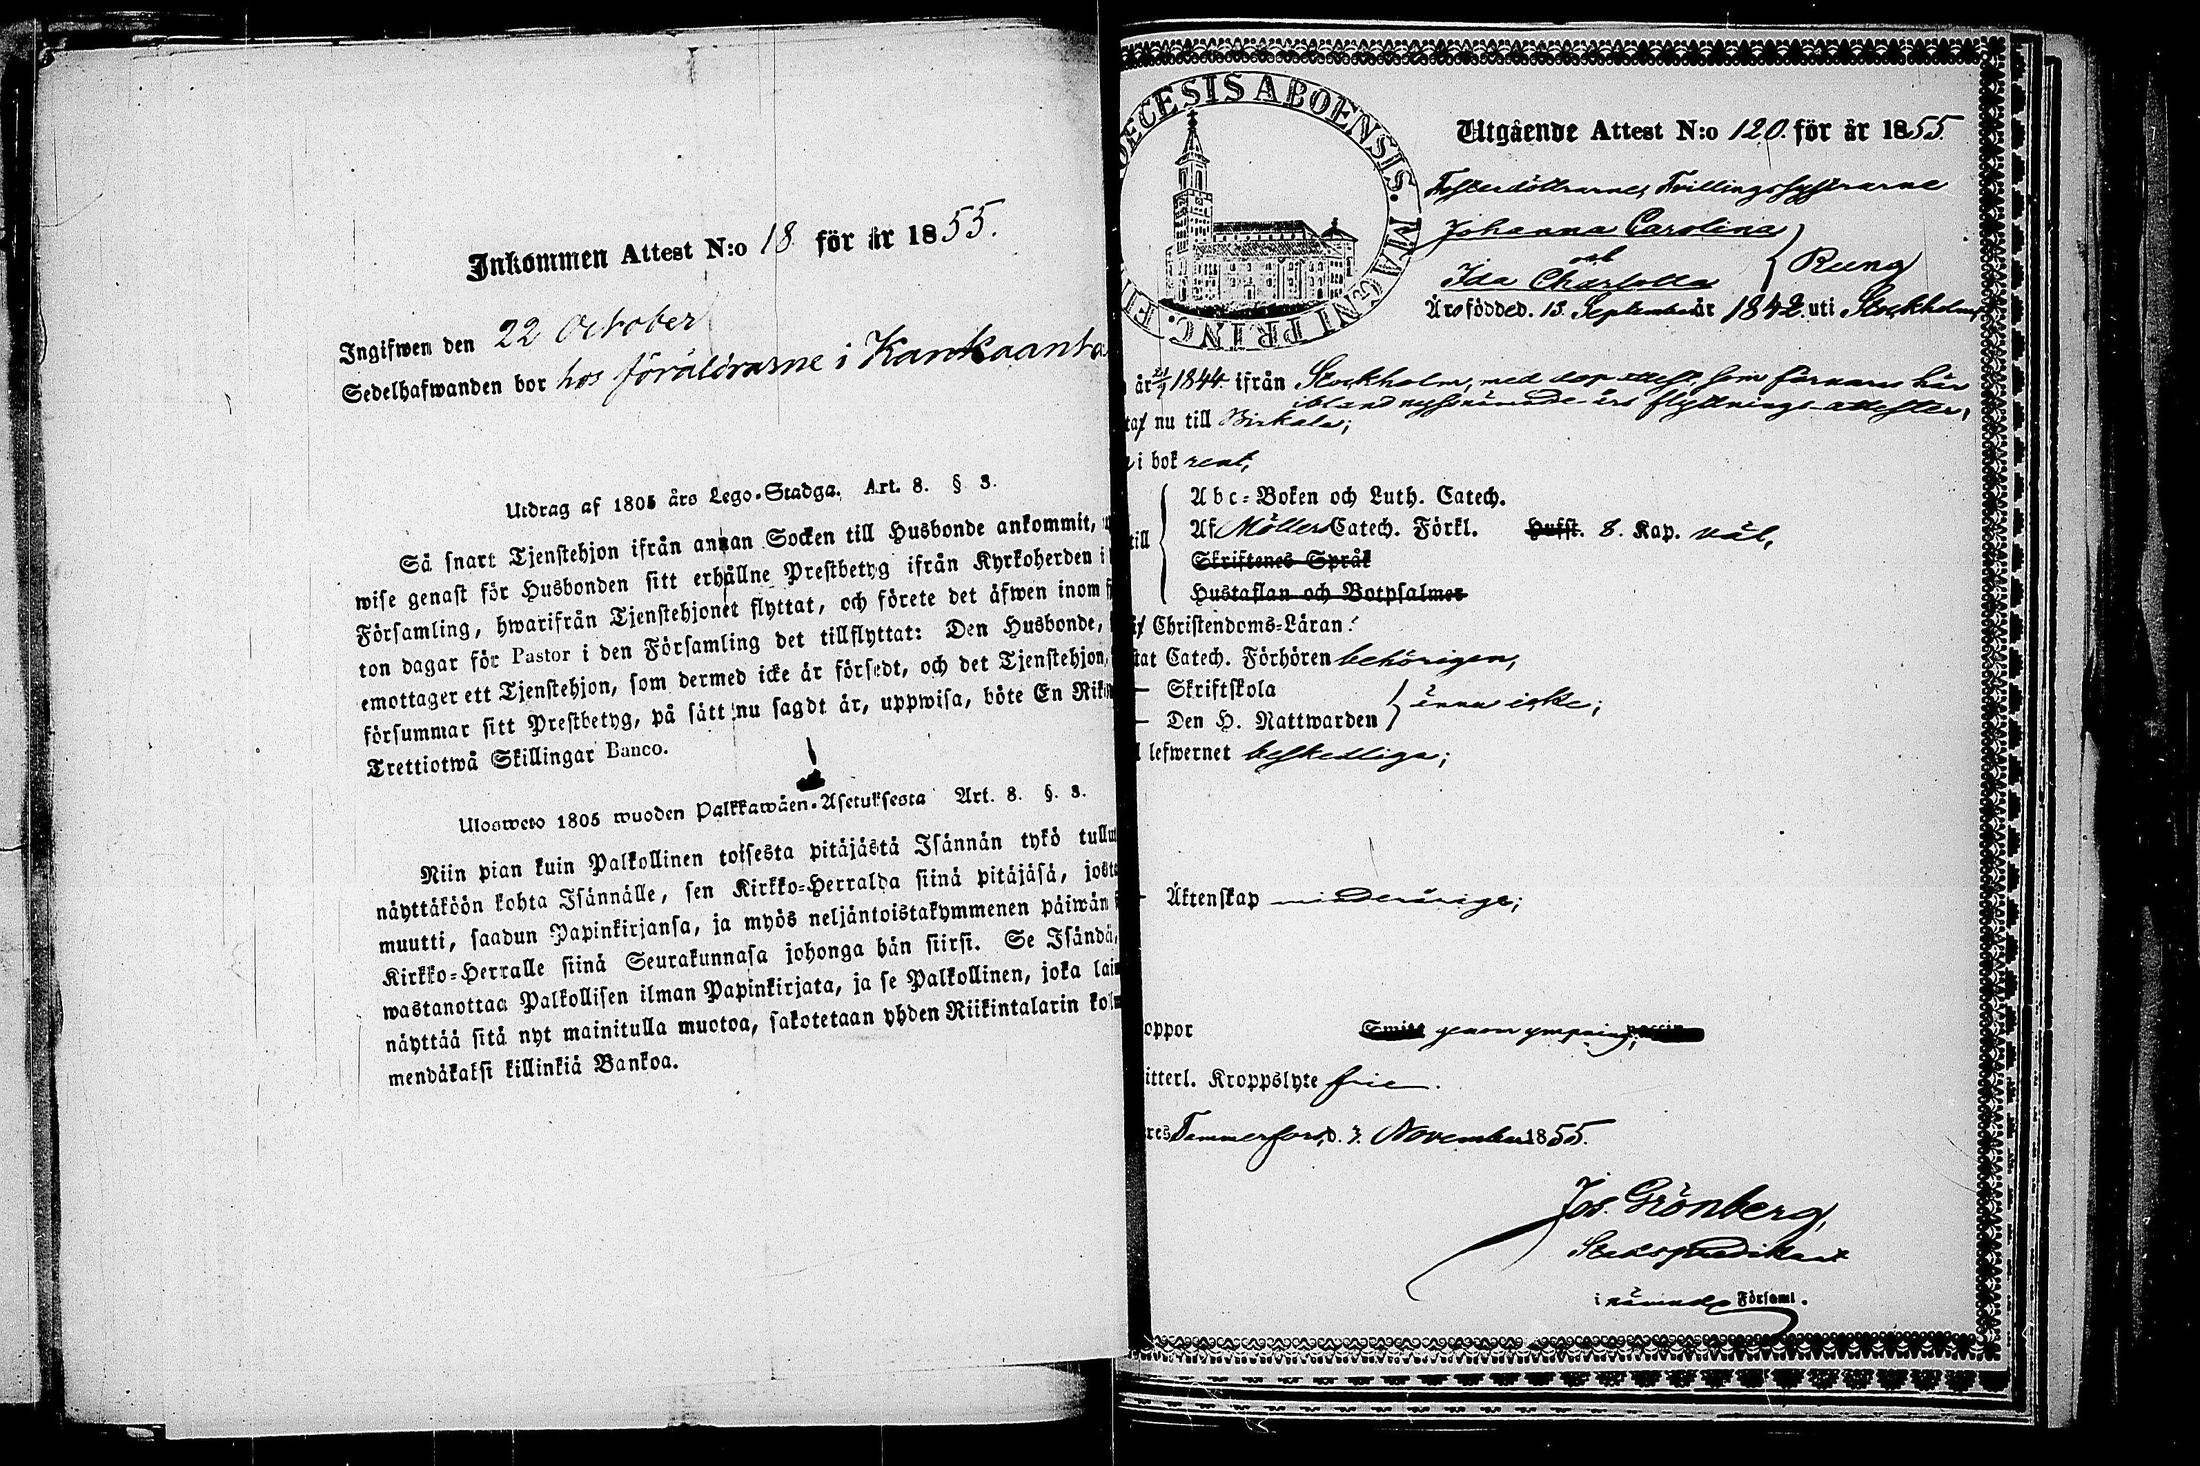 Inkommen Attest N:o 18 för år 1855.
Ingifwen den 22 October
Sedelhafwanden bor hos föräldrarne i Kankaanta
Utdrag af 1805 års Lego-Stadga. Art. 8. § 3.
Så snart Tjenstehjon ifrån annan Socken till Husbonde ankommit,
wise genast för Husbonden sitt erhållne Prestbetyg ifrån Kyrkoherden i
Församling, hwarifrån Tjenstehjonet flyttat, och förete det äfwen inom
ton dagar för Pastor i den Församling det tillflyttat: Den Husbonde,
emottager ett Tjenstehjon, som dermed icke är försedt, och det Tjenstehjon,
försummar sitt Prestbetyg, på sätt nu sagdt är, uppwisa, böte En Rik
Trettiotwå Skillingar Banco.
Ulosweto 1805 wuoden Palkkawäen-Asetuksesta Art. 8. §. 3.
Niin pian kuin Palkollinen toisesta pitäjästä Isännän tykö tullut
näyttäköön kohta Isännälle, sen Kirkko-Herralda siinä pitäjäsä, josta
muutti, saadun Papinkirjansa, ja myös neljäntoistakymmenen päiwän
Kirkko-Herralle siinä Seurakunnasa johonga hän siirsi. Se Isändä,
wastanottaa Palkollisen ilman Papinkirjata, ja se Palkollinen, joka lai
näyttää sitä nyt mainitulla muotoa, sakotetaan yhden Riikintalarin kol
mendäkaksi killinkiä Bankoa.
OECESIS ABOENSIS. MAGNI PRINC. FI
Utgående Attest N:o 120. för år 1855.
Fosterdöttrarne, Tvillingssystrarne
Johanna Carolina
och } Rung
Ida Charlotta
Äro födde d. 13 September år 1842 uti Stockholm,
år 1844 ifrån Stockholm, med dop attest som förvaras här
ibland nyssnämnde års flyttnings-attester,
nu till Birkala;
i bok rent,
till { Abc-Boken och Luth. Catech.
Af Möllers Catech. Förkl. Hufst. 8. Kap. väl,
Skriftenes Språk
Hustaflan och Botpsalmer
Christendoms-Läran:
tat Catech. Förhören behörigen,
— Skriftskola
— Den H. Nattwarden } ännu icke;
lefwernet beskedliga;
— Äktenskap minderåriga;
oppor genom ympning,
itterl. Kroppslyte fria.
res Tammerfors, d. 3. November 1855.
Jos. Grönberg,
Stadspredikant
i nämnde Församl.